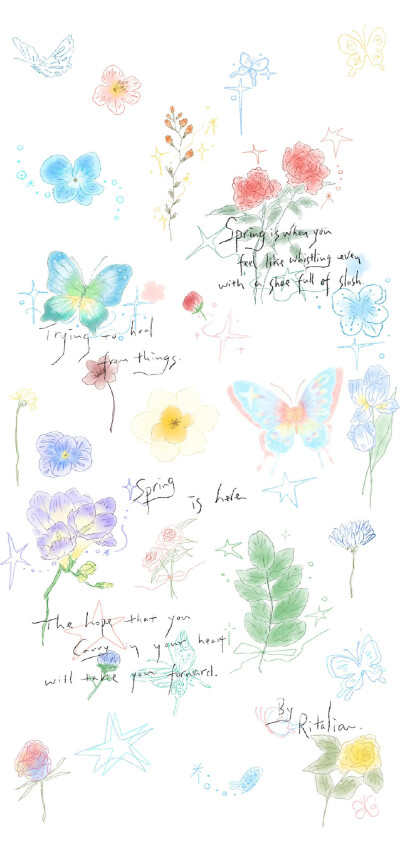 Spring is when you
feel like whistling even
with a shoe full of slush.
Trying to heal
from things.
Spring
is here
The hope that you
Carry in your heart
will take you forward.
By
Ritalian.